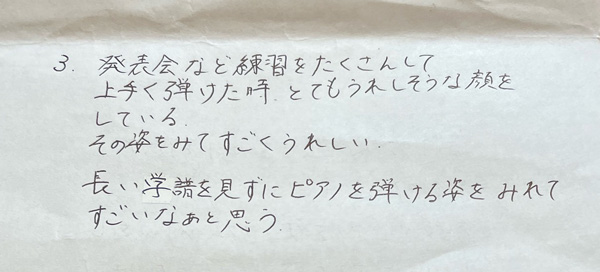 3. 発表会など練習をたくさんして
上手く弾けた時 とてもうれしそうな顔を
している.
その姿をみてすごくうれしい.
長い学譜を見ずにピアノを弾ける姿をみれて
すごいなぁと思う.